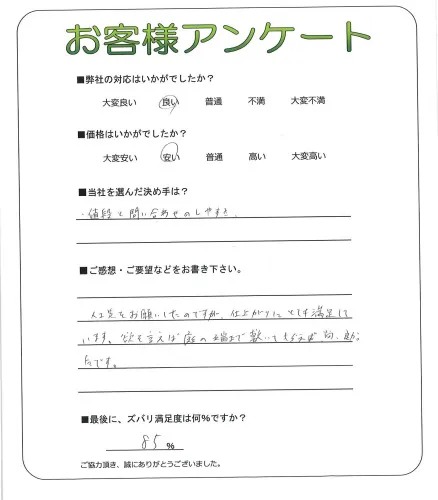 お客様アンケート
■弊社の対応はいかがでしたか？
大変良い 良い 普通 不満 大変不満
■価格はいかがでしたか？
大変安い 安い 普通 高い 大変高い
■当社を選んだ決め手は？
・値段と問い合わせのしやすさ
■ご感想・ご要望などをお書き下さい。
人工芝をお願いしたのですが、仕上がりにとても満足して
います。欲を言えば庭の端まで敷いて
たです。
■最後に、ズバリ満足度は何％ですか？
85％
ご協力頂き、誠にありがとうございました。